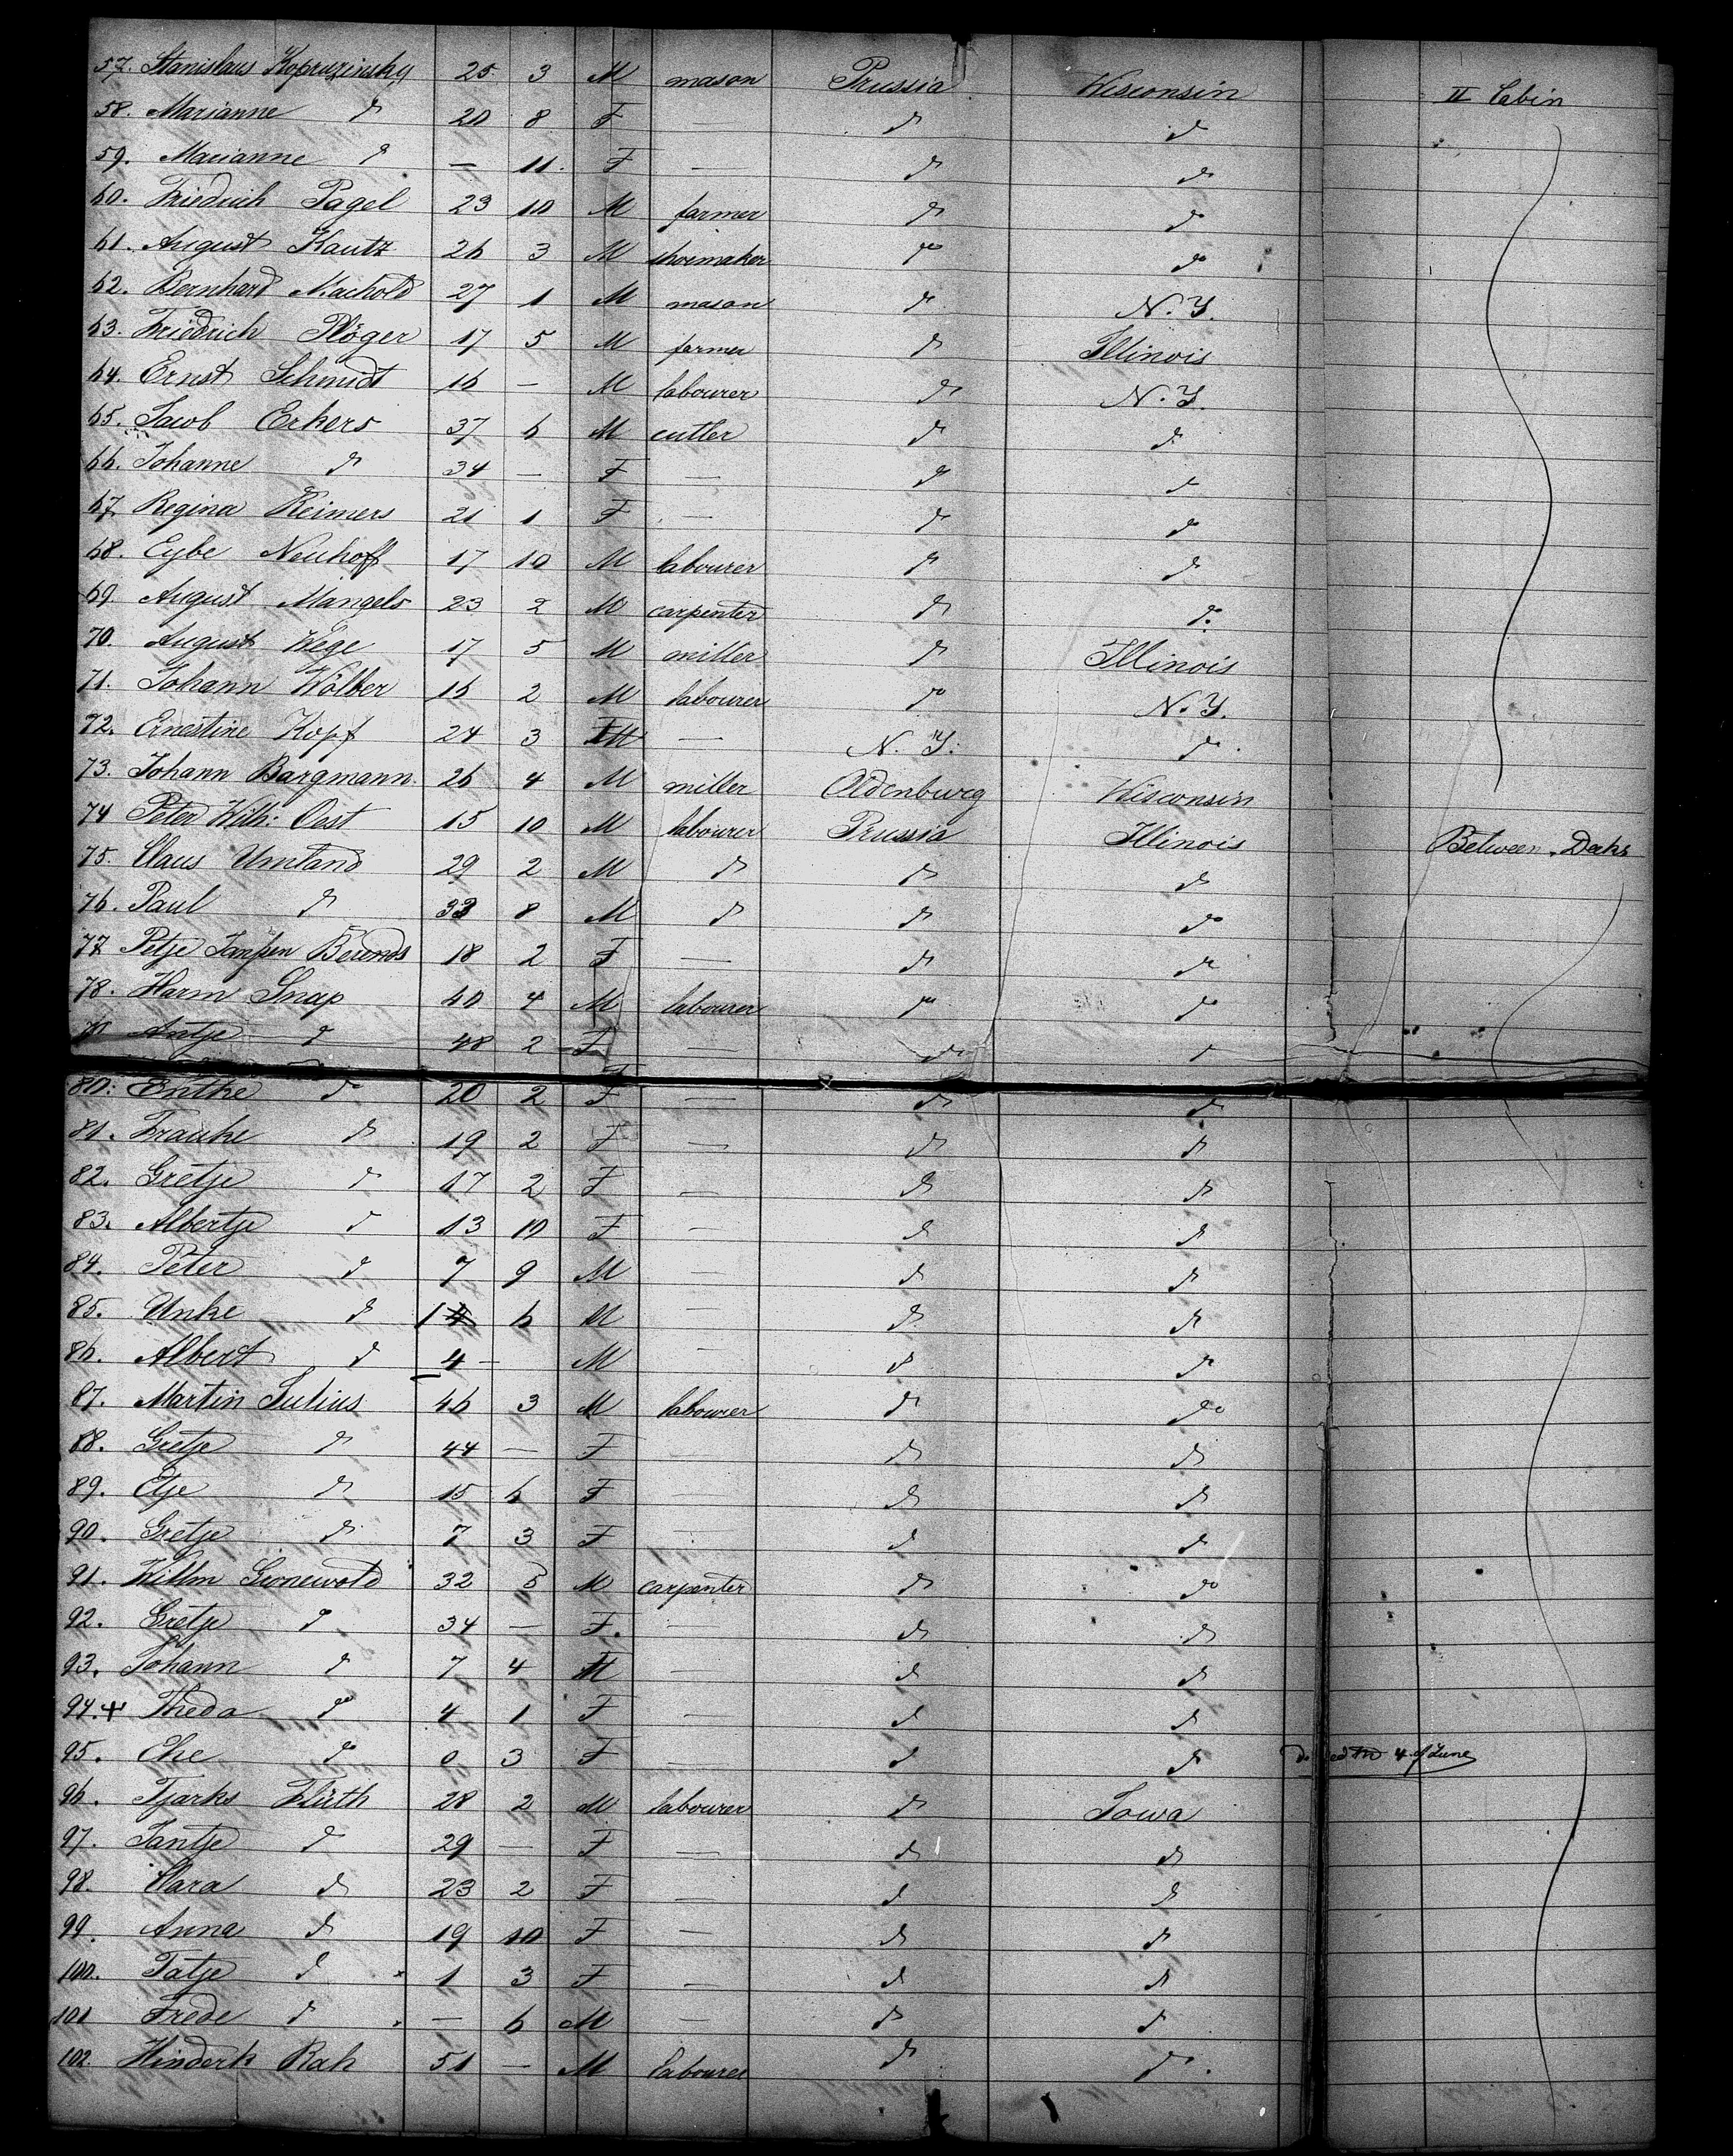 57. Stanislaus Kopruzinsky 25 3 M mason Prussia Wisconsin II Cabin
58. Marianne do 20 8 F — do do
59. Marianne do — 11. F — do do
60. Friedrich Pagel 23 10 M farmer do do
61. August Kautz 26 3 M shoemaker do do
62. Bernhard Machold 27 1 M mason do N. Y.
63. Friedrich Plöger 17 5 M farmer do Illinois
64. Ernst Schmidt 16 — M labourer do N. Y.
65. Jacob Erkers 37 6 M cutler do do
66. Johanne do 34 — F — do do
67. Regina Reimers 21 1 F — do do
68. Eybe Neuhoff 17 10 M labourer do do
69. August Mangels 23 2 M carpenter do do
70. August Wege 17 5 M miller do Illinois
71. Johann Wölber 16 2 M labourer do N. Y.
72. Ernestine Kopf 24 3 — N. Y. do
73. Johann Bargmann 26 4 M miller Oldenburg Wisconsin
74 Peter Wilh: Oest 15 10 M labourer Prussia Illinois Between Decks
75. Claus Umland 29 2 M do do do
76. Paul do 33 8 M do do do
77 Petje Janssen Berends 18 2 F — do do
78. Harm Snap 40 4 M labourer do do
79 Antje do 48 2 F — do do
80. Entke do 20 2 F — do do
81. Frauke do 19 2 F — do do
82. Gretje do 17 2 F — do do
83. Albertje do 13 10 F — do do
84. Peter do 7 9 M — do do
85. Unke do 6 M — do do
86. Albert do 4 — M — do do
87. Martin Julius 46 3 M labourer do do
88. Gretje do 44 — F do do
89. Etje do 15 6 F — do do
90. Gretje do 7 3 F do do
91. Willm Gronewold 32 5 M carpenter do do
92. Gretje do 34 — F. — do do
93. Johann do 7 4 M — do do
94. + Theda do 4 1 F — do do
95. Eke do 0 3 F — do do 4 of June
96. Tjarks Flüth 28 2 M labourer do Iowa
97. Jantje do 29 — F — do do
98. Clara do 23 2 F — do do
99. Anna do 19 10 F — do do
100. Tatje do 1 3 F — do do
101 Frede do — 6 M — do do
102. Hinderk Rah 51 — M labourer do do.